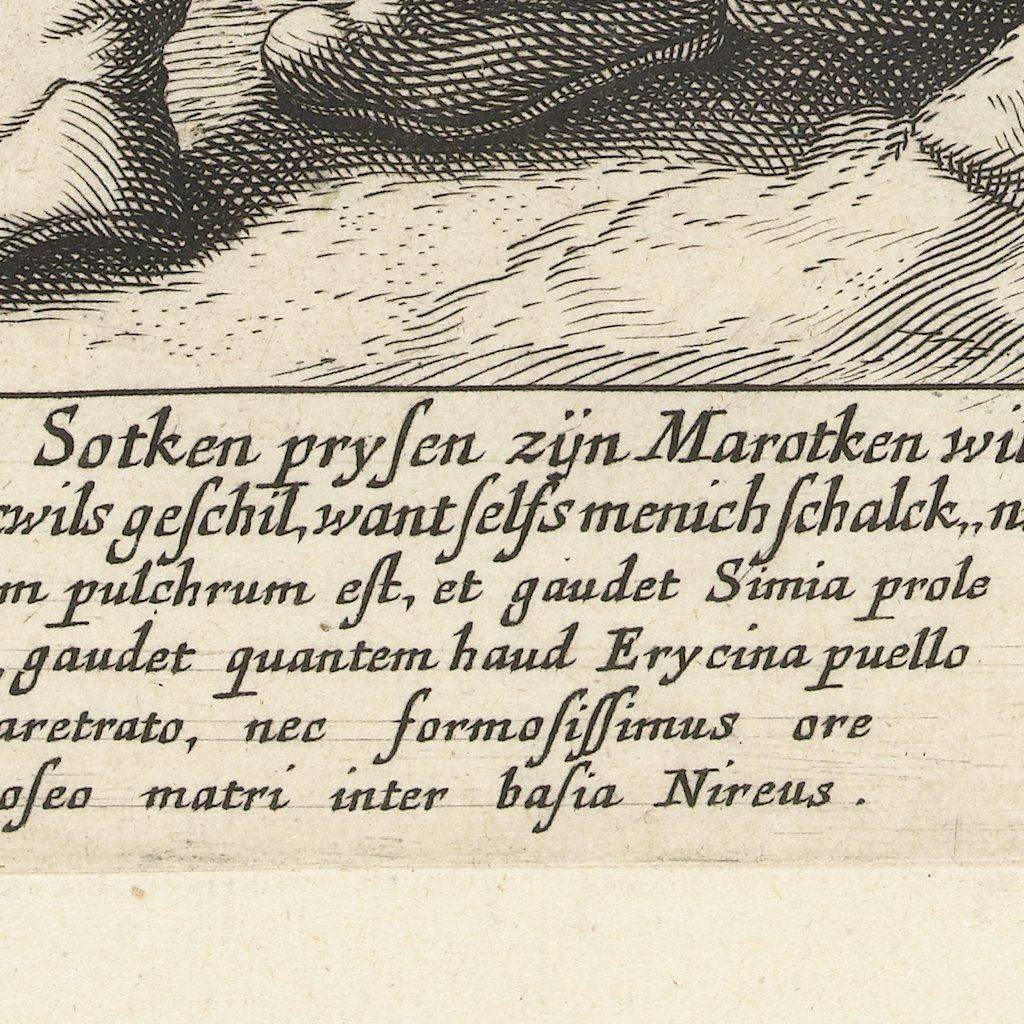 Sotken prysen zijn Marotken wil
wils geschil, want selfs menich schalck,, n
m pulchrum est, et gaudet Simia prole
, gaudet quantem haud Erycina puello
aretrato, nec formosissimus ore
oseo matri inter basia Nireus .